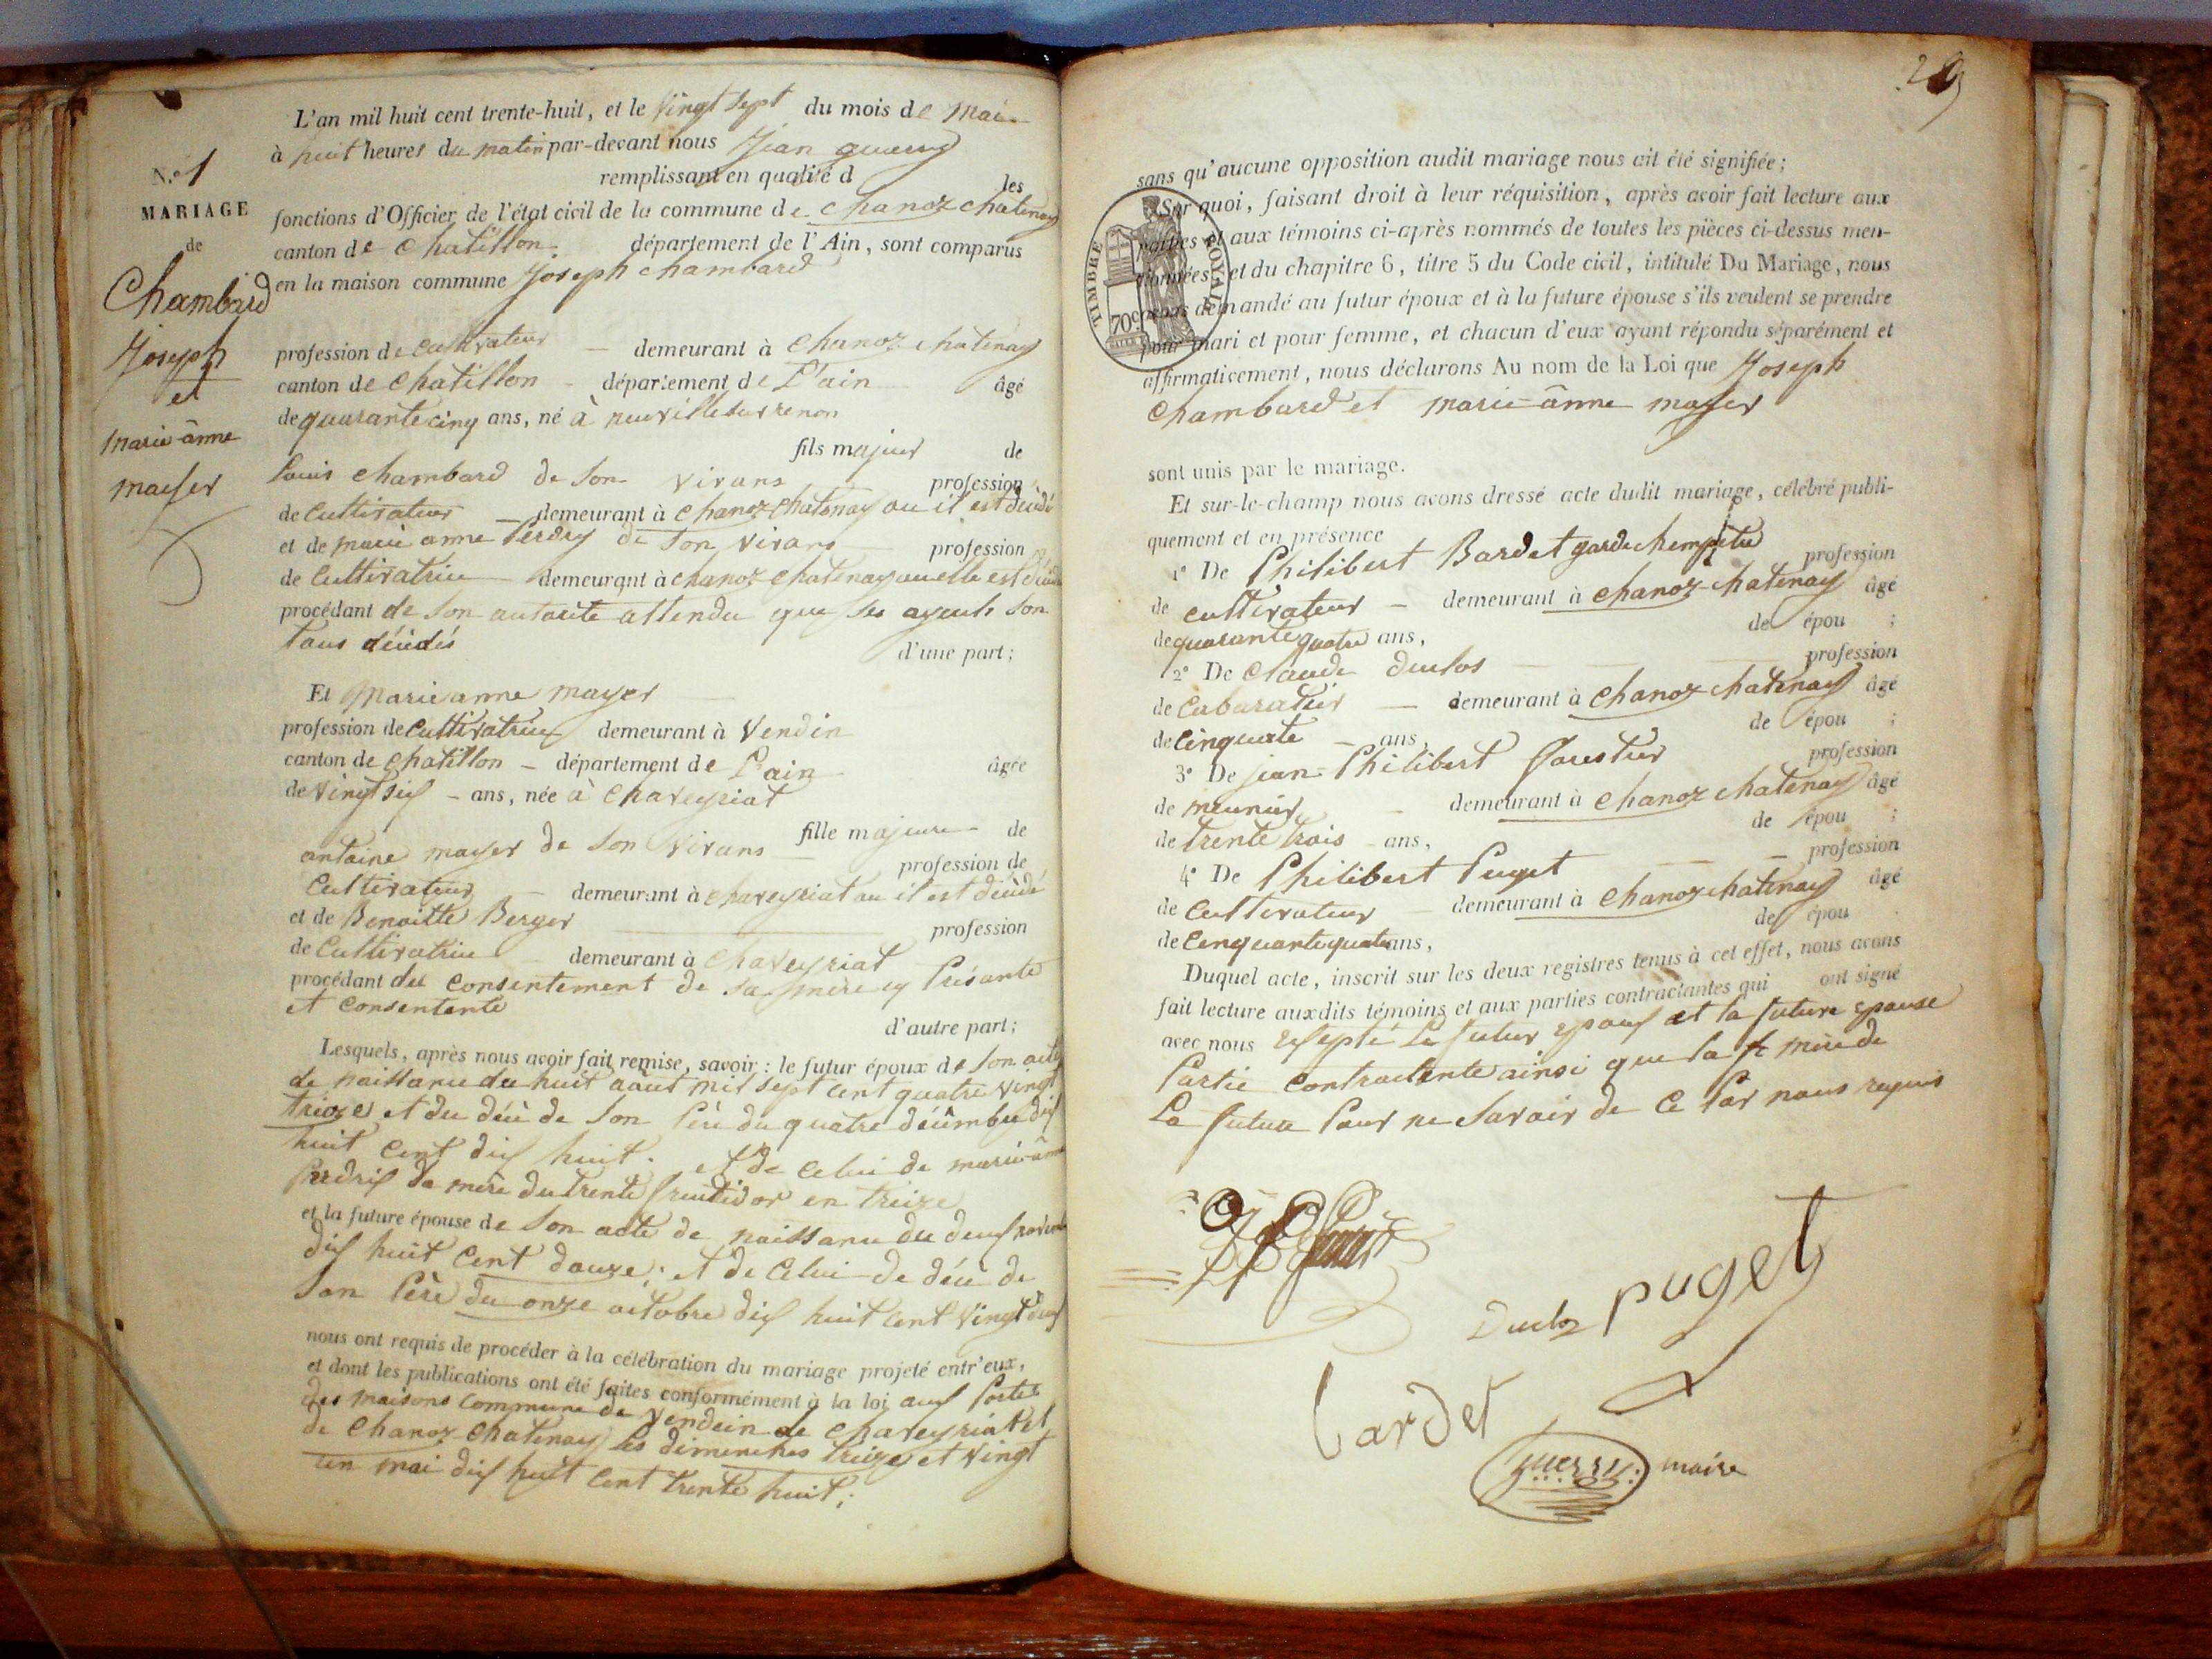 N.° 1
MARIAGE
de
Chambard
Joseph
et
marie-ânne
mayer
L'an mil huit cent trente-huit, et le vingt sept du mois de mai
à huit heures du matin par-devant nous Jean
remplissant en qualité d les
fonctions d'Officier de l'état civil de la commune de chanoz chatenay
canton de chatillon département de l'Ain, sont comparus
en la maison commune Joseph chambard
profession de cultivateur — demeurant à chanoz chatenay
canton de chatillon - département de L'ain âgé
de quarante cinq ans, né à neuville sur renon
fils majeur de
Louis chambard de son vivans profession
de cultivateur — demeurant à chanoz chatenay ou il est décédé
et de marie anne Perdry de son vivans profession
de cultivatrice demeurant à chanoz chatenay ou elle est
procédant de son autorité attendu que ses ayeuls son
tous décédés d'une part;
Et marie anne mayer
profession de cultivatrice demeurant à vendin
canton de chatillon - département de L'ain âgée
de vingt six - ans, née à chaveyriat
fille majeure de
antoine mayer de son vivans profession de
cultivateur demeurant à chaveyriat ou il est décédé
et de Benoitte Berger profession
de cultivatrice demeurant à chaveyriat
procédant du consentement de sa mère cy Présante
et consentente d'autre part;
Lesquels, après nous avoir fait remise, savoir: le futur époux de son acte
de naissance du huit août mil sept cent quatre vingt
treize et du décè de son Père du quatre décembre dix
huit cent dix huit. et de celui de marie-ânne
Perdrix sa mère du trente fructidor en treize
et la future épouse de son acte de naissance du deux
dix huit cent douze; et de celui de décè de
son Père du onze octobre dix huit cent vingt deux
nous ont requis de procéder à la célébration du mariage projeté entr'eux,
et dont les publications ont été faites conformément à la loi aux Portes
des maisons commune de vendein de chaveyriat et
de chanoz chatenay les dimenches treize et vingt
un mai dix huit cent trente huit;
sans qu'aucune opposition audit mariage nous ait été signifiée;
Sur quoi, faisant droit à leur réquisition, après avoir fait lecture aux
parties et aux témoins ci-après nommés de toutes les pièces ci-dessus men-
tionnées, et du chapitre 6, titre 5 du Code civil, intitulé Du Mariage, nous
avons demandé au futur époux et à la future épouse s'ils veulent se prendre
pour mari et pour femme, et chacun d'eux ayant répondu séparément et
affirmativement, nous déclarons Au nom de la Loi que Joseph
chambard et marie-ânne mayer
TIMBRE ROYAL
70c
sont unis par le mariage.
Et sur-le-champ nous avons dressé acte dudit mariage, célébré publi-
quement et en présence
1° De Philibert Bardet garde champetre profession
de cultivateur — demeurant à chanoz-chatenay âgé
de quarante quatre ans, de épou ;
2° De Claude duclos profession
de cabaratier — demeurant à chanoz chatenay âgé
de cinquante - ans de épou ;
3° De jean-Philibert profession
de meunier demeurant à chanoz chatenay âgé
de trente trois - ans, de épou ;
4° De Philibert Puget profession
de cultivateur demeurant à chanoz chatenay âgé
de cinquante quatre ans, de épou
Duquel acte, inscrit sur les deux registres tenus à cet effet, nous avons
fait lecture auxdits témoins et aux parties contractantes qui ont signé
avec nous exsepté Le futur epoux et la future epouse
Partie contractente ainsi que la mère de
La future Pour ne savoir de ce Par nous requis
puget
bardet
maire